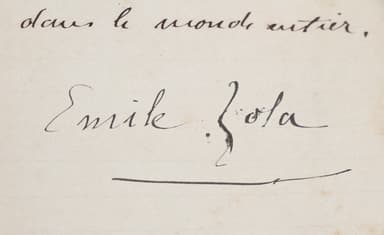 dans le monde entier.
Emile Zola